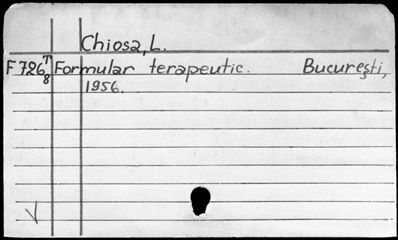 Chiosa, L.
F 726 T/8 Formular terapeutic. Bucureşti,
1956.